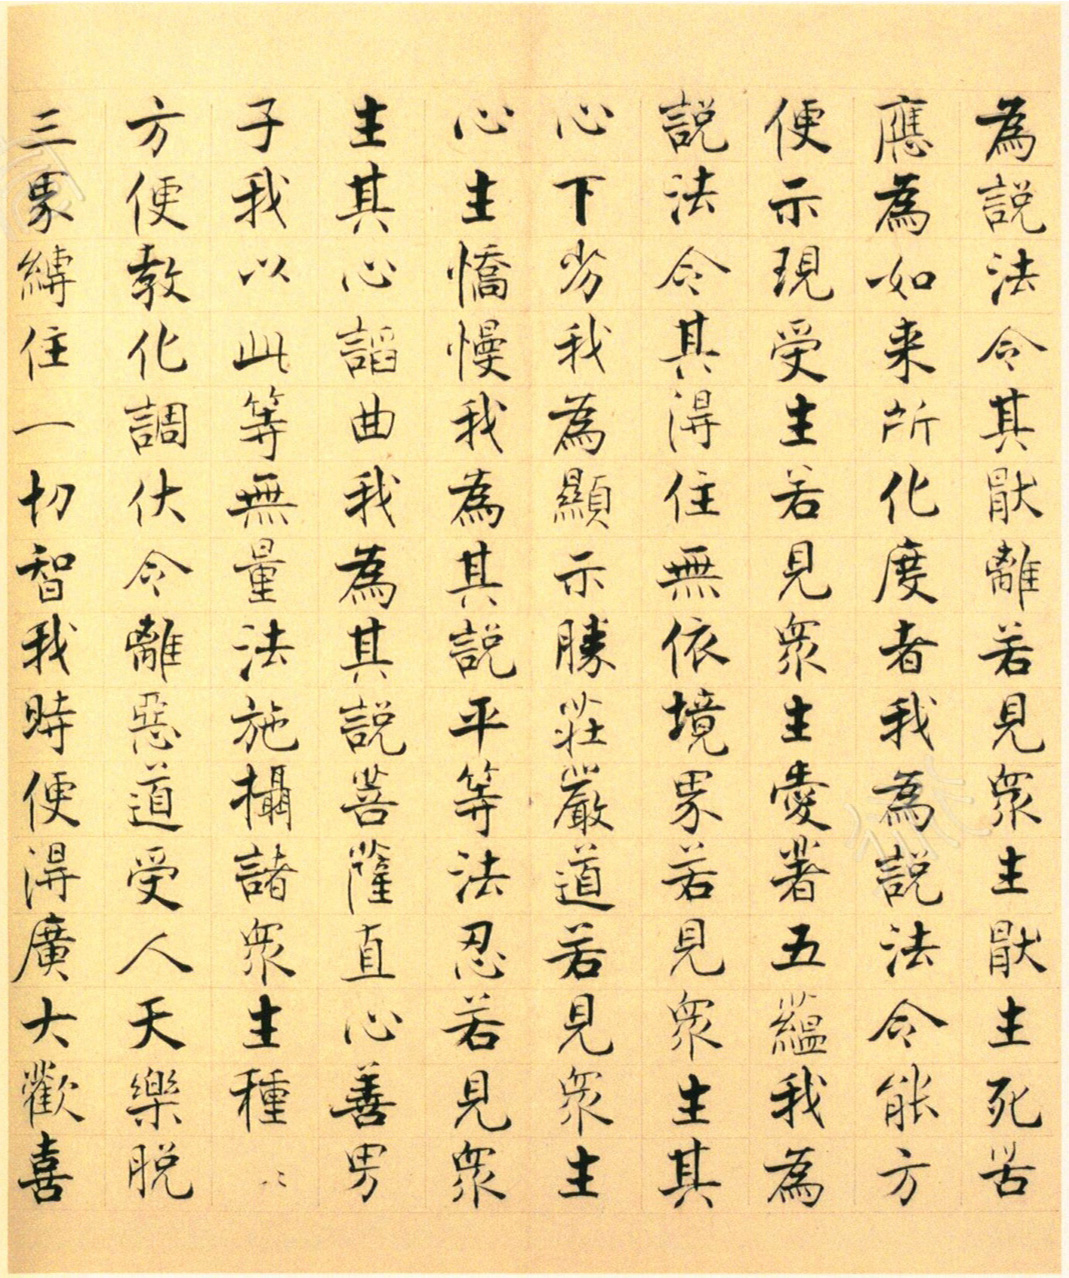 為説法令其猒離若見衆生猒生死苦
應為如来所化度者我為説法令能方
便示現受生若見衆生愛著五蘊我為
説法令其得住無依境界若見衆生其
心下劣我為顯示勝莊嚴道若見衆生
心生憍慢我為其説平等法忍若見衆
生其心諂曲我為其説菩薩直心善男
子我以此等無量法施攝諸衆生種〻
方便教化調伏令離惡道受人天樂脱
三界縛住一切智我時便得廣大歡喜